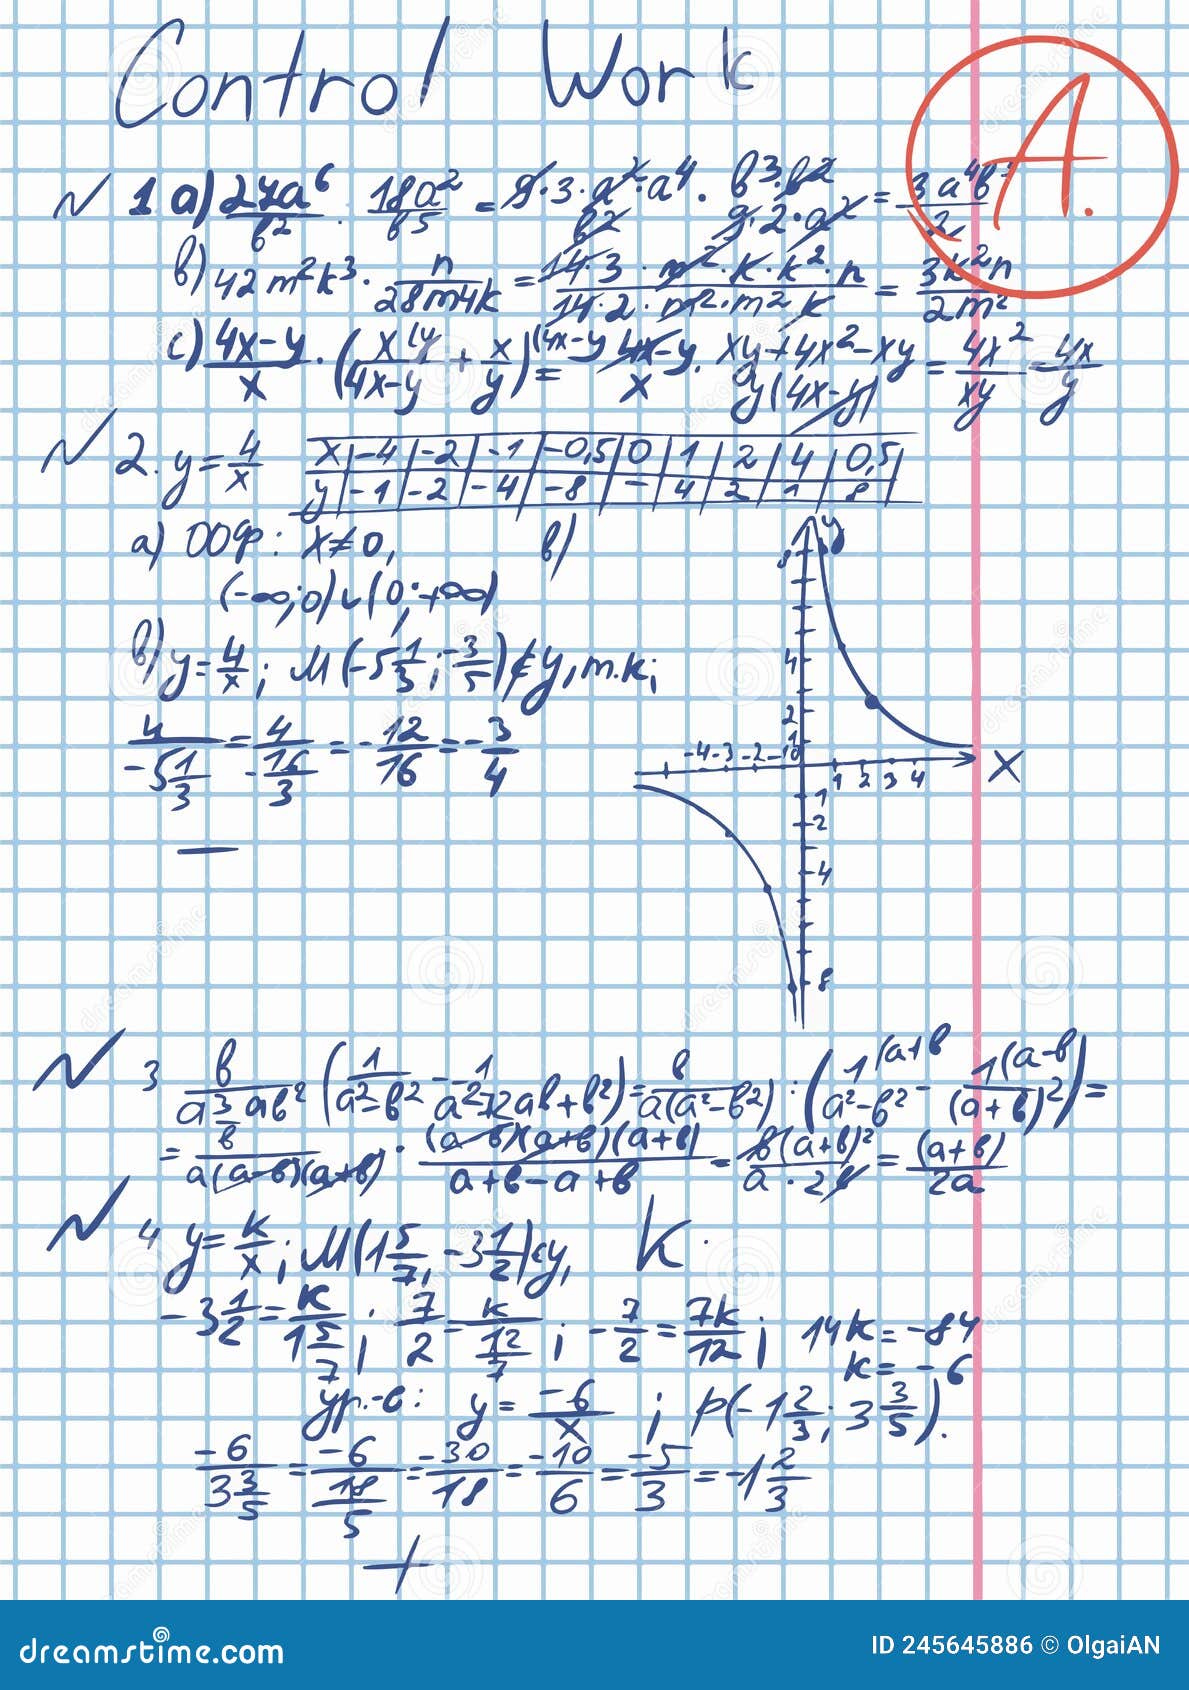 Control Work
A.
1 a) 27a⁶/b² · 18a²/b⁵ = 9·3·a²·a⁴/b² · b³·b²/9·2·a² = 3a⁴b³/2
b) 42m²k³ · n/28m⁴k = 14·3·m²·k·k²·n/14·2·m²·m²k = 3k²n/2m²
c) 4x-y/x · (x(y/4x-y + x/y)(4x-y = 4x-y/x · xy+4x²-xy/y(4x-y) = 4x²/xy = 4x/y
2. y = 4/x
x -4 -2 -1 -0,5 0 1 2 4 0,5
y -1 -2 -4 -8 - 4 2 1 8
a) ООФ: x≠0, в)
(-∞;0)∪(0;+∞)
в) y=4/x; M(-5 1/3; -3/5)∉y, т.к;
4/-5 1/3 = 4/-16/3 = -12/16 = -3/4
—
y
8
4
2
1
-4 -3 -2 -1 0
1 2 3 4
X
1
2
4
8
3 b/a³-ab² (1/a²-b² - 1/a²+2ab+b²) = b/a(a²-b²) : (1(a+b/a²-b² - 1(a-b)/(a+b)²) =
= b/a(a-b)(a+b) · (a-b)(a+b)(a+b)/a+b-a+b = b(a+b)²/a·2b = (a+b)/2a
4 y=k/x; M(1 5/7, -3 1/2)∈y, k.
-3 1/2 = k/1 5/7; 7/2 = k/12/7; -7/2 = 7k/12; 14k = -84
k = -6
ур.-е: y = -6/x; p(-1 2/3; 3 3/5).
-6/3 3/5 = -6/18/5 = -30/18 = -10/6 = -5/3 = -1 2/3
+
dreamstime.com
ID 245645886 © OlgaiAN